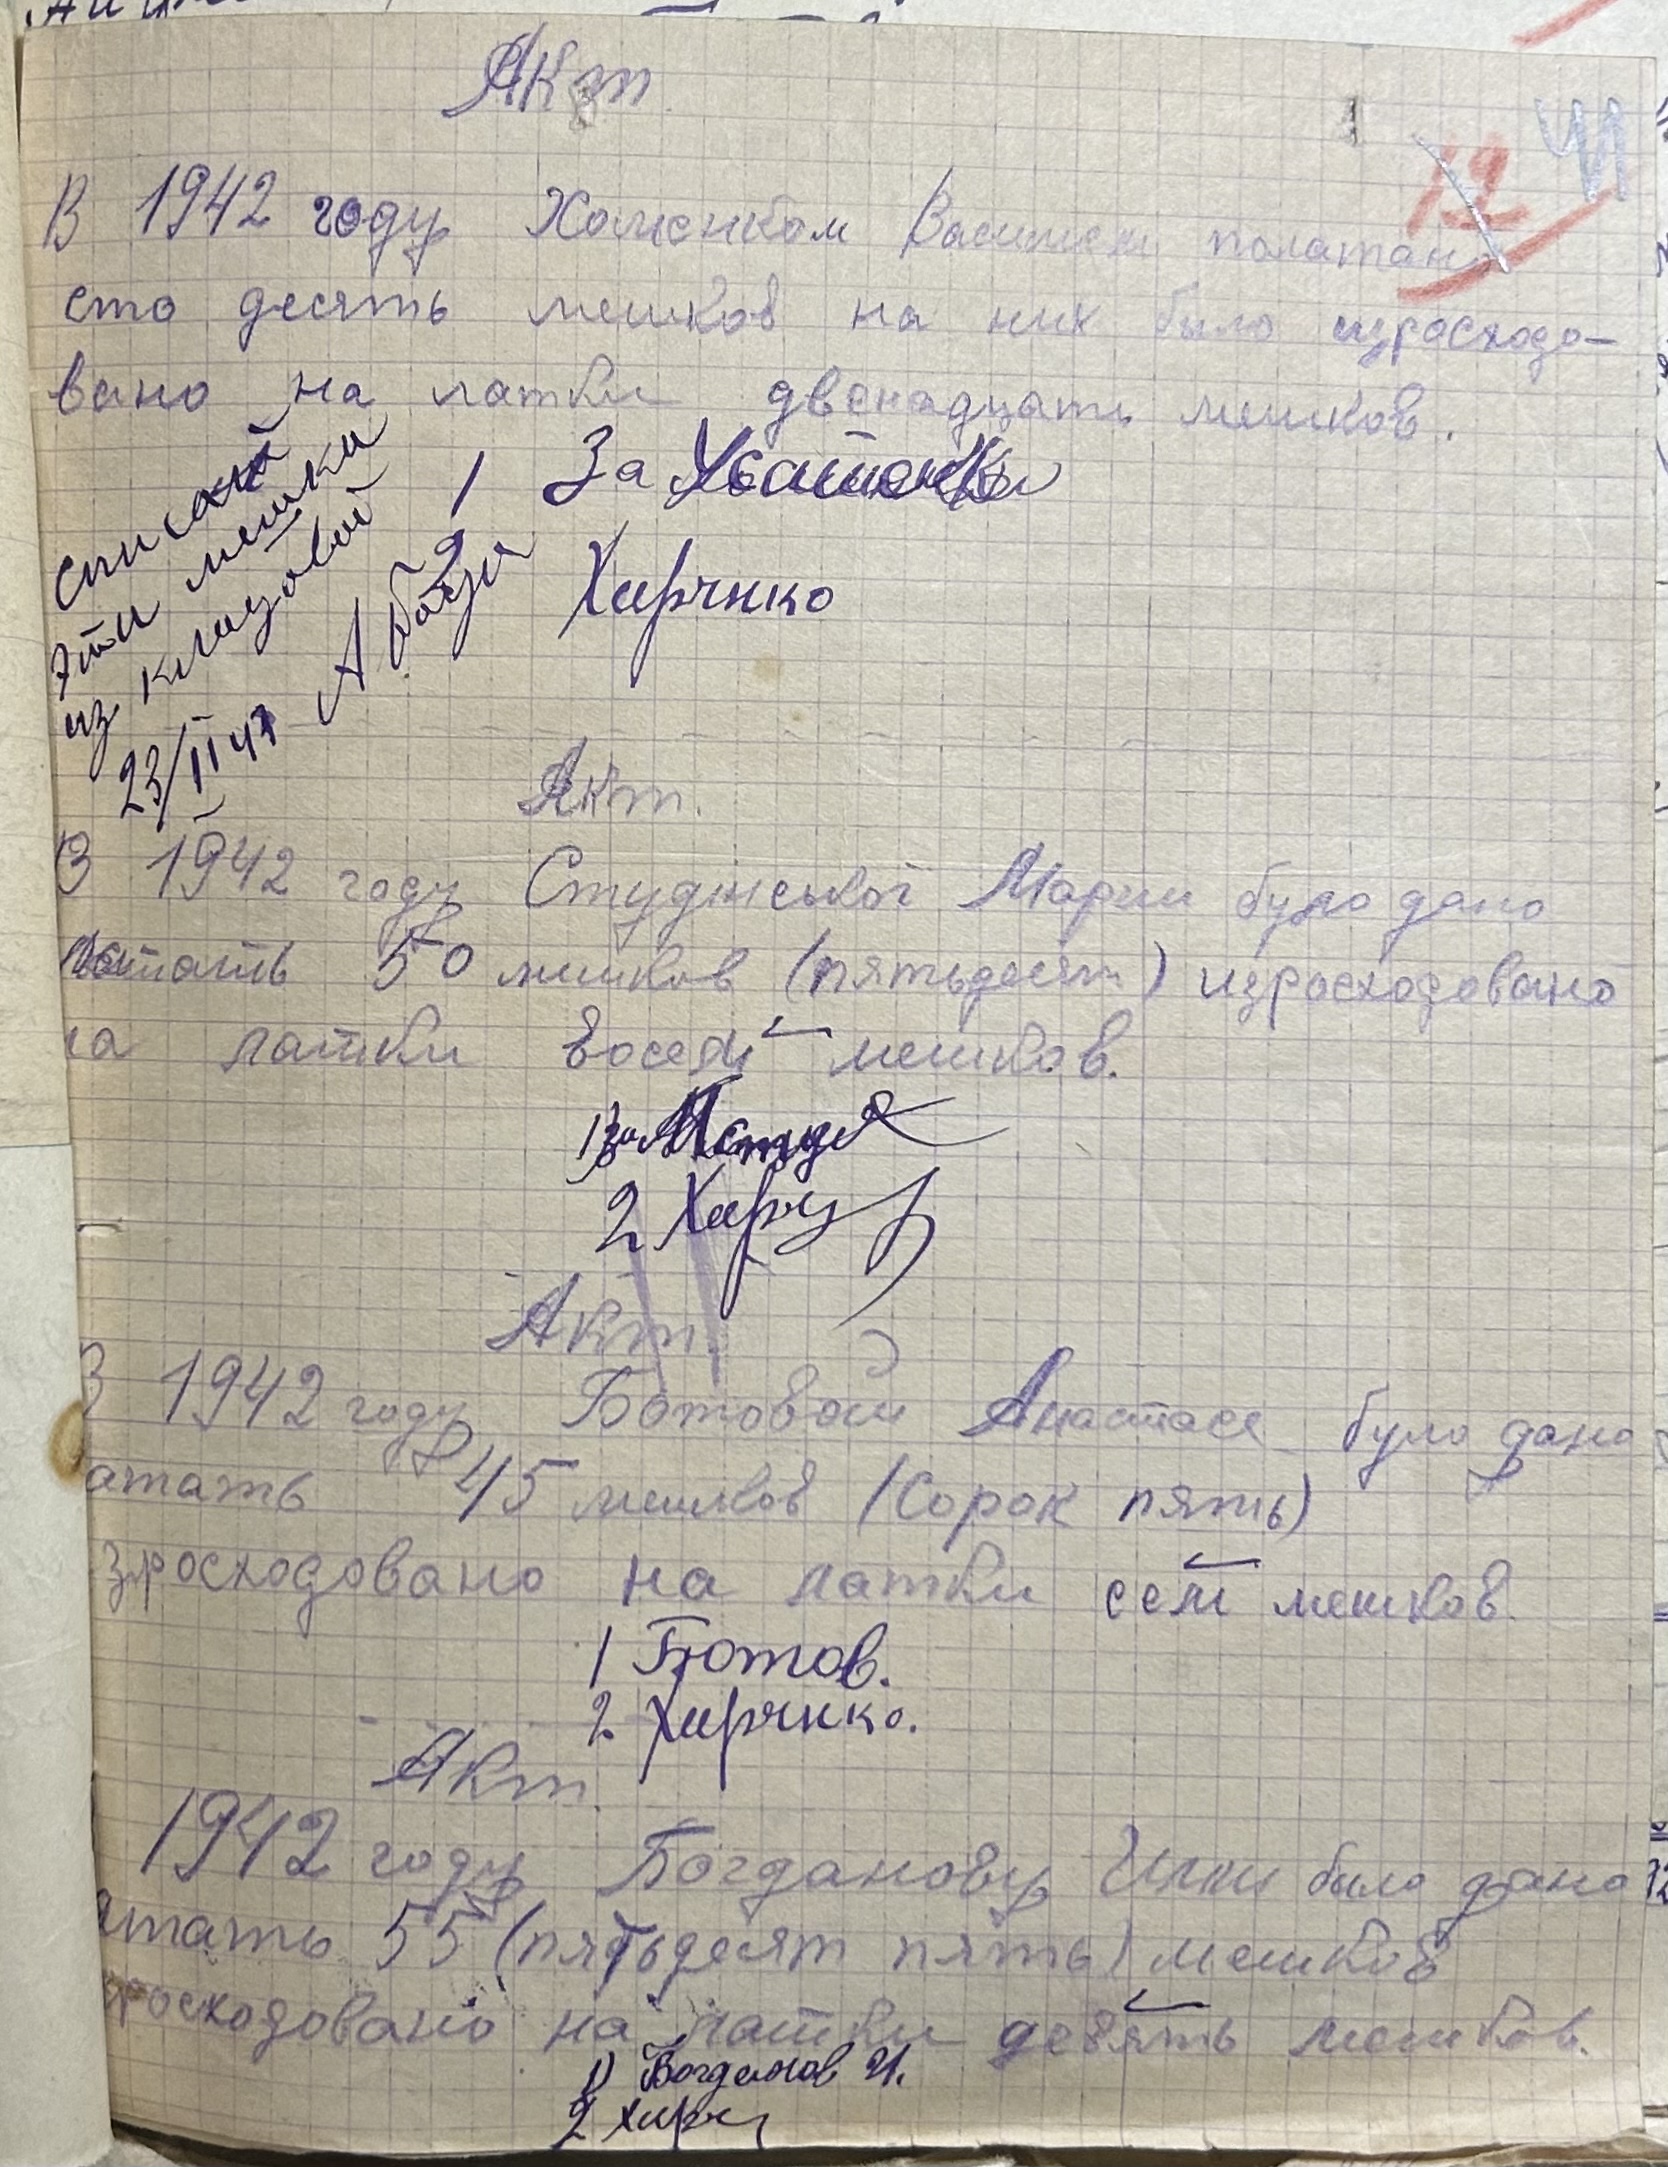 Акт
12 41
В 1942 году Хоменком Василем полатан
сто десять мешков на них было израсходо-
вано на латки двенадцать мешков.
1 За
2 Хирчнко
Списать
эти мешки
из кладовой
23/II 43
Акт.
В 1942 году Студінської Марии було дано
латать 50 мешков (пятьдесят) израсходовано
на латки восем мешков.
1) за
2 Хирч
Акт.
В 1942 году Ботовой Анастасе було дано
атать 45 мешков (сорок пять)
зросходовано на латки сем мешков.
1 Ботов.
2 Хирчнко.
Акт.
1942 году Богданову было дано
атать 55 (пятьдесят пять) мешков
росходовано на латки девять мешков.
1) Богданов И.
2 Хирч